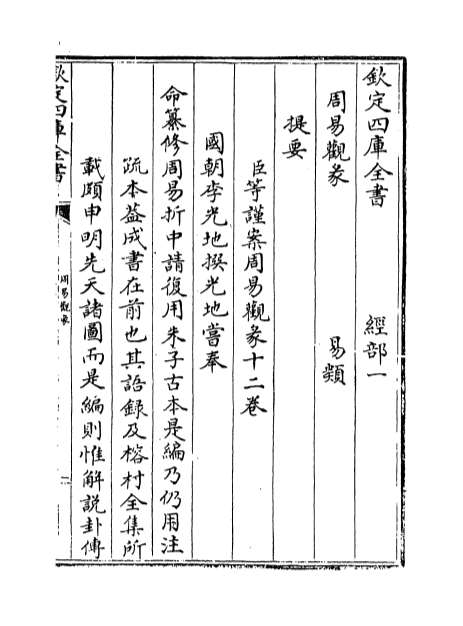 欽定四庫全書 經部一
周易觀彖 易類
提要
臣等謹案周易觀彖十二卷
國朝李光地撰光地嘗奉
命纂修周易折中請復用朱子古本是編乃仍用注
疏本葢成書在前也其語録及榕村全集所
載頗申明先天諸圖而是編則惟解說卦傳
欽定四庫全書
周易觀彖